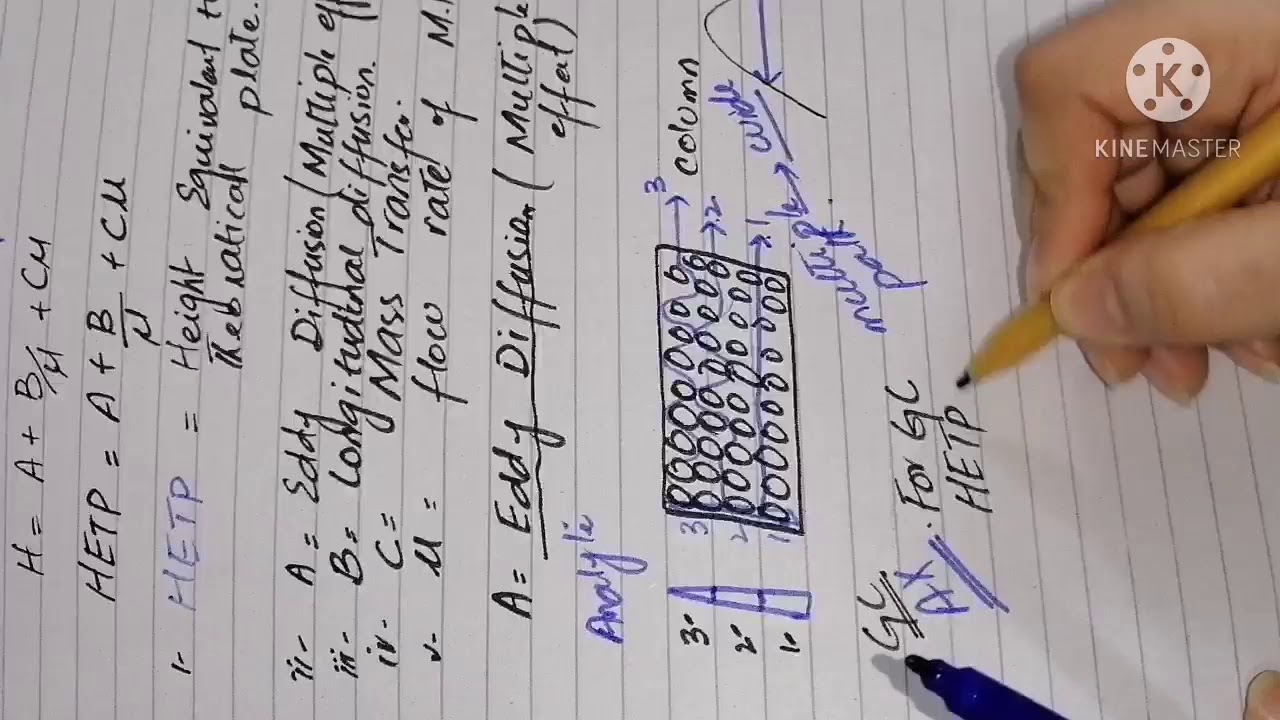 H = A + B/μ + Cμ
HETP = A + B/μ + Cμ
1- HETP = Height Equivalent t
Theoratical plate.
ii- A = Eddy Diffusion (Multiple eff
iii- B = Longitudinal diffusion.
iv- C = Mass Transfer.
v- μ = flow rate of M.
A = Eddy Diffusion (Multiple
effect)
Analyte
3. 3 → 3 column
2. 2 → 2
1. 1 → 1
multiple → wide
path.
GC. For GC
AX HETP
KINEMASTER